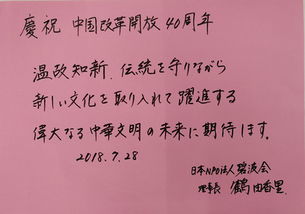 慶祝 中国改革開放40周年
温故知新、伝統を守りながら
新しい文化を取り入れて躍進する
偉大なる中華文明の未来に期待します。
2018.7.28
日本NPO法人碧波会
理事長 鶴田香里